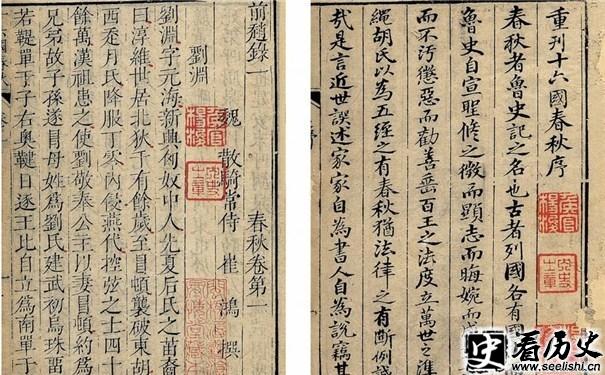 重刊十六國春秋序
春秋者魯史記之名也古者列國各有國
魯史自宣聖脩之微而顯志而晦婉而成
而不汚懲惡而勸善垂百王之法度立萬世之準
繩胡氏以為五經之有春秋猶法律之有斷例誠
哉是言近世誤述家家自為書人自為說竊其
春秋卷第一
前趙錄一
魏 散騎常侍 崔鴻 撰
劉淵
劉淵字元海新興匈奴中人先夏后氏之苗裔
曰淳維世居北狄千有餘歲至冒頓襲破東胡
西走月氏降服丁零內侵燕代控弦之士四十
餘萬漢祖患之使劉敬奉公主以妻冒頓約爲
兄弟故子孫遂冒母姓爲劉氏建武初烏珠留
若鞮單于子右奧鞬日逐王比自立爲南單于
侯官楊浚
史 看历史
www.seelishi.cn